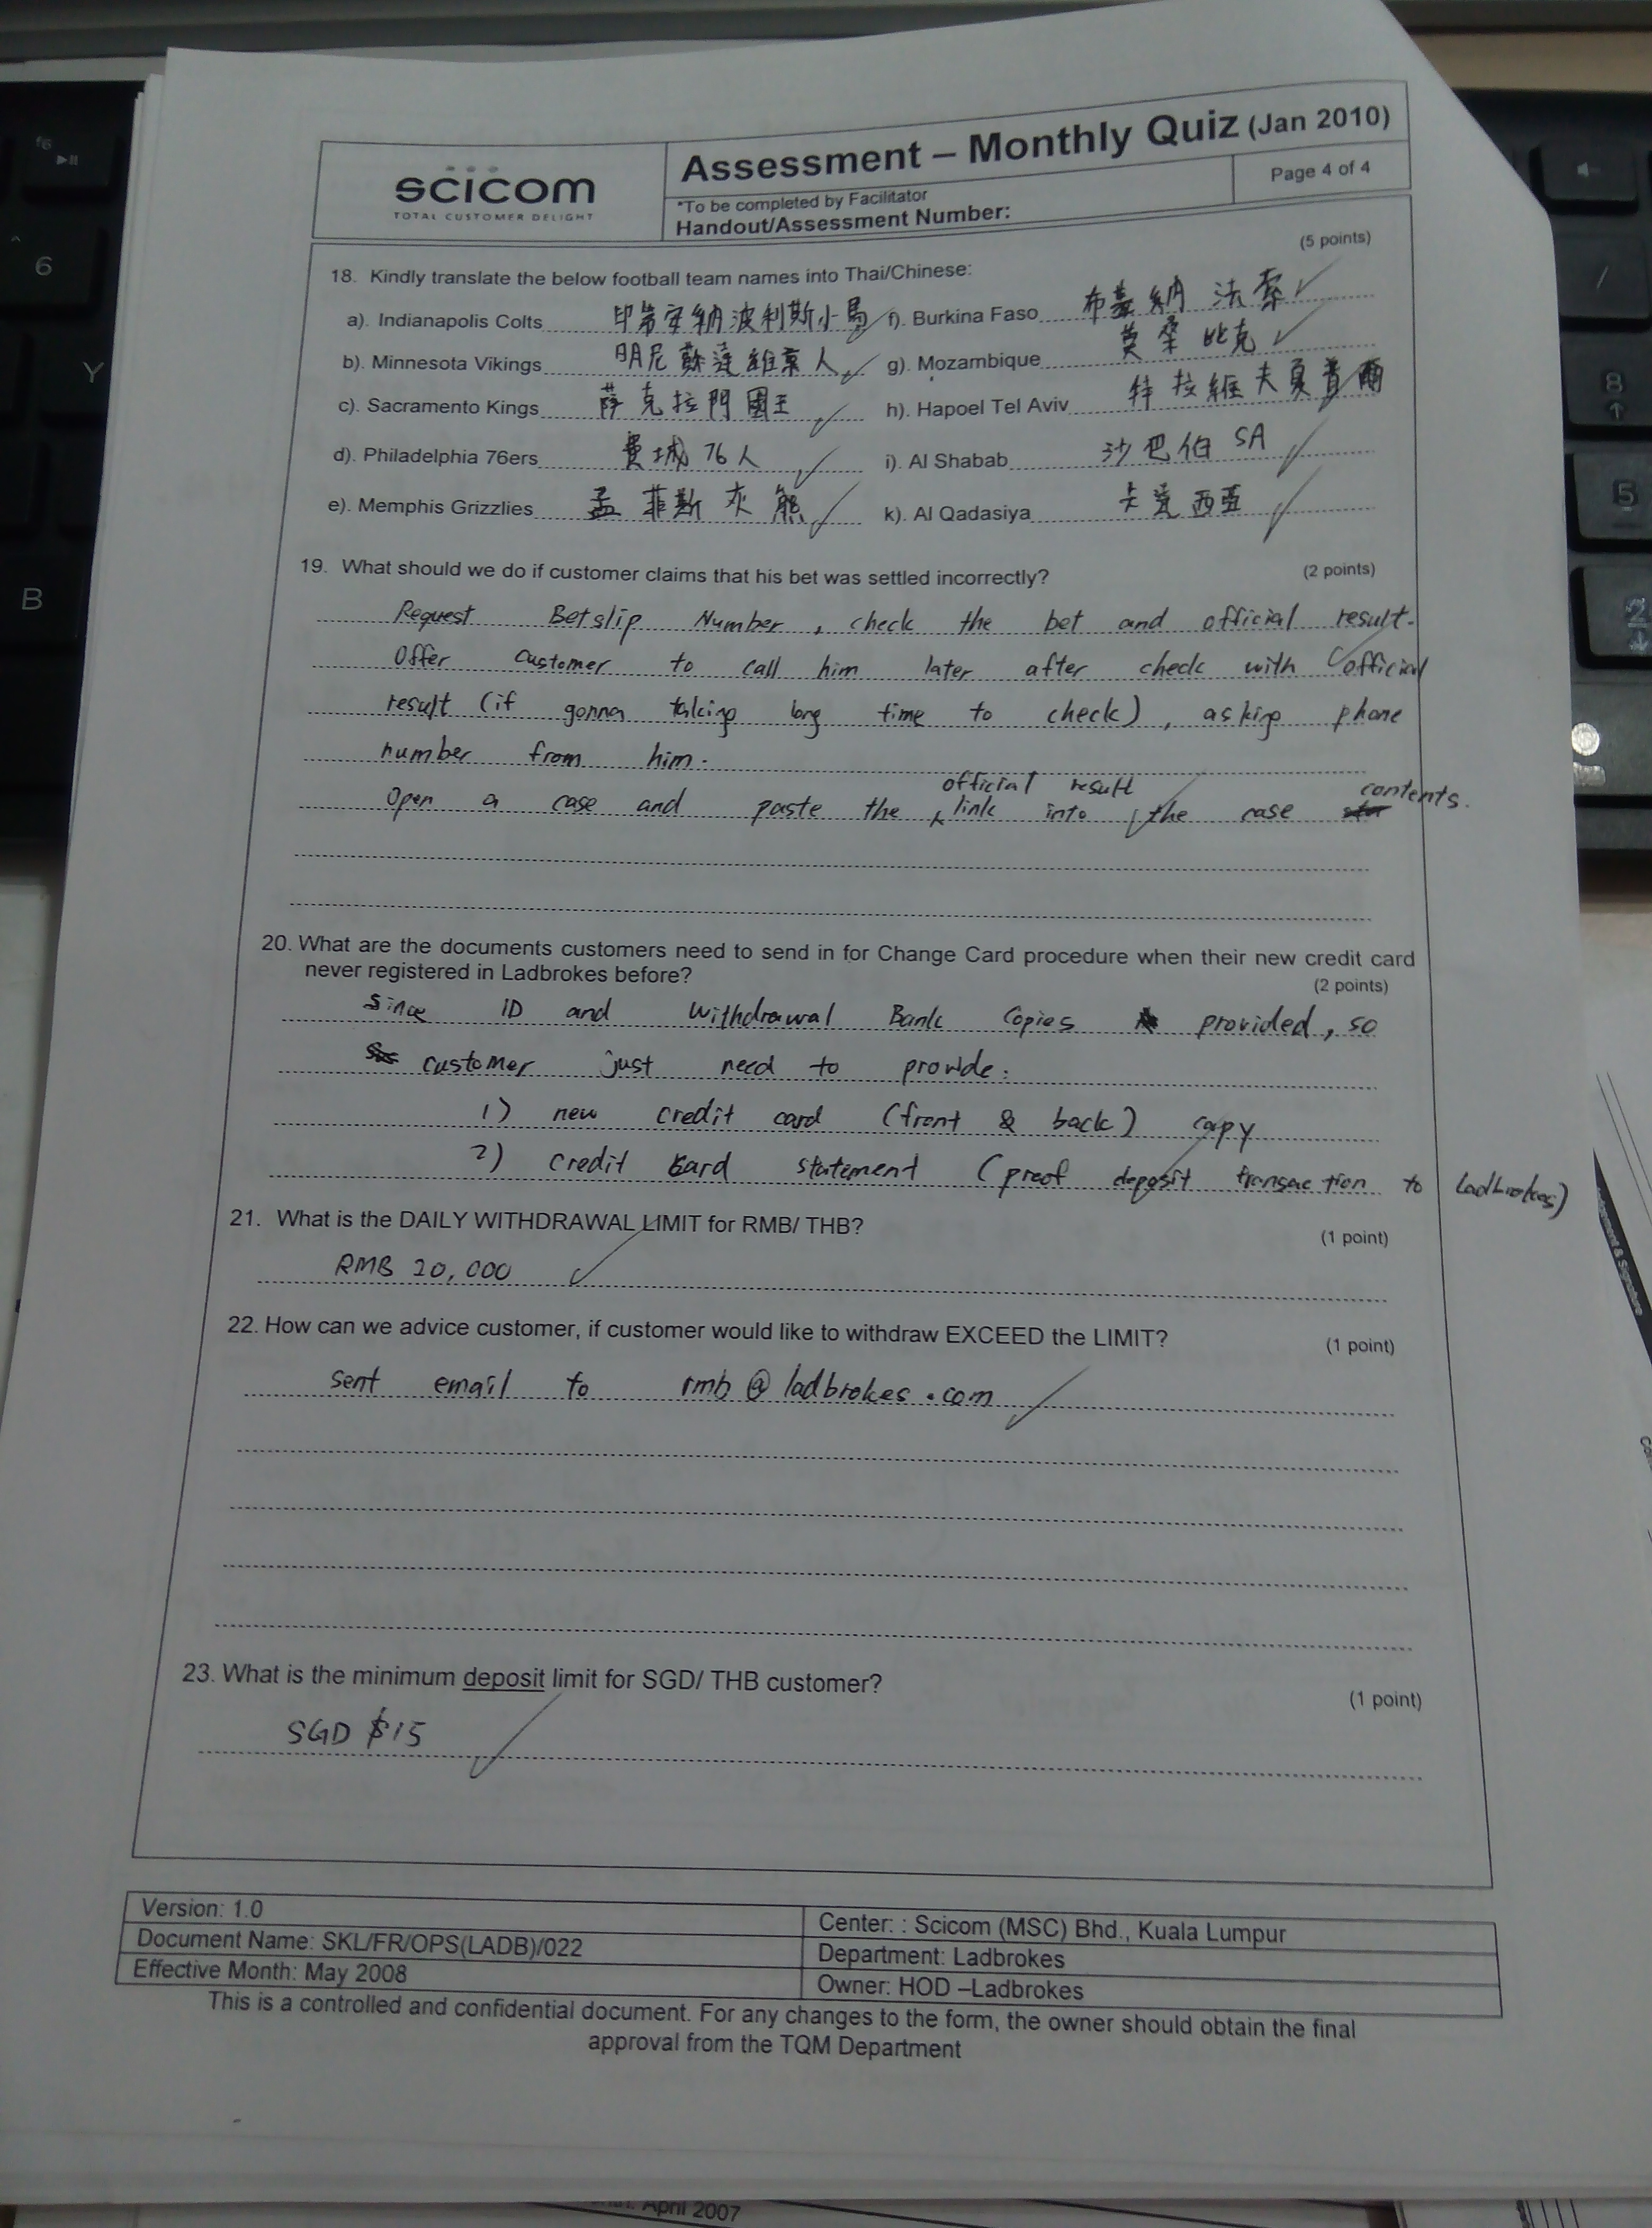 scicom
TOTAL CUSTOMER DELIGHT
Assessment – Monthly Quiz (Jan 2010)
*To be completed by Facilitator
Handout/Assessment Number:
Page 4 of 4
(5 points)
18. Kindly translate the below football team names into Thai/Chinese:
a). Indianapolis Colts 印第安納波利斯小馬 f). Burkina Faso 布基納法索
b). Minnesota Vikings 明尼蘇達維京人 g). Mozambique 莫桑比克
c). Sacramento Kings 薩克拉門國王 h). Hapoel Tel Aviv 特拉維夫夏普爾
d). Philadelphia 76ers 費城76人 i). Al Shabab 沙巴伯 SA
e). Memphis Grizzlies 孟菲斯灰熊 k). Al Qadasiya 卡達西亞
19. What should we do if customer claims that his bet was settled incorrectly? (2 points)
Request Betslip Number, check the bet and official result.
Offer customer to call him later after check with official
result (if gonna taking long time to check), asking phone
number from him.
Open a case and paste the official result link into the case contents.
20. What are the documents customers need to send in for Change Card procedure when their new credit card
never registered in Ladbrokes before? (2 points)
Since ID and Withdrawal Bank Copies provided, so
customer just need to provide:
1) new credit card (front & back) copy
2) credit card statement (proof deposit transaction to Ladbrokes)
21. What is the DAILY WITHDRAWAL LIMIT for RMB/ THB? (1 point)
RMB 20,000
22. How can we advice customer, if customer would like to withdraw EXCEED the LIMIT? (1 point)
sent email to rmb@ladbrokes.com
23. What is the minimum deposit limit for SGD/ THB customer? (1 point)
SGD $15
Version: 1.0
Document Name: SKL/FR/OPS(LADB)/022
Effective Month: May 2008
Center: : Scicom (MSC) Bhd., Kuala Lumpur
Department: Ladbrokes
Owner: HOD –Ladbrokes
This is a controlled and confidential document. For any changes to the form, the owner should obtain the final
approval from the TQM Department
April 2007
f6
6
Y
B
8
5
2